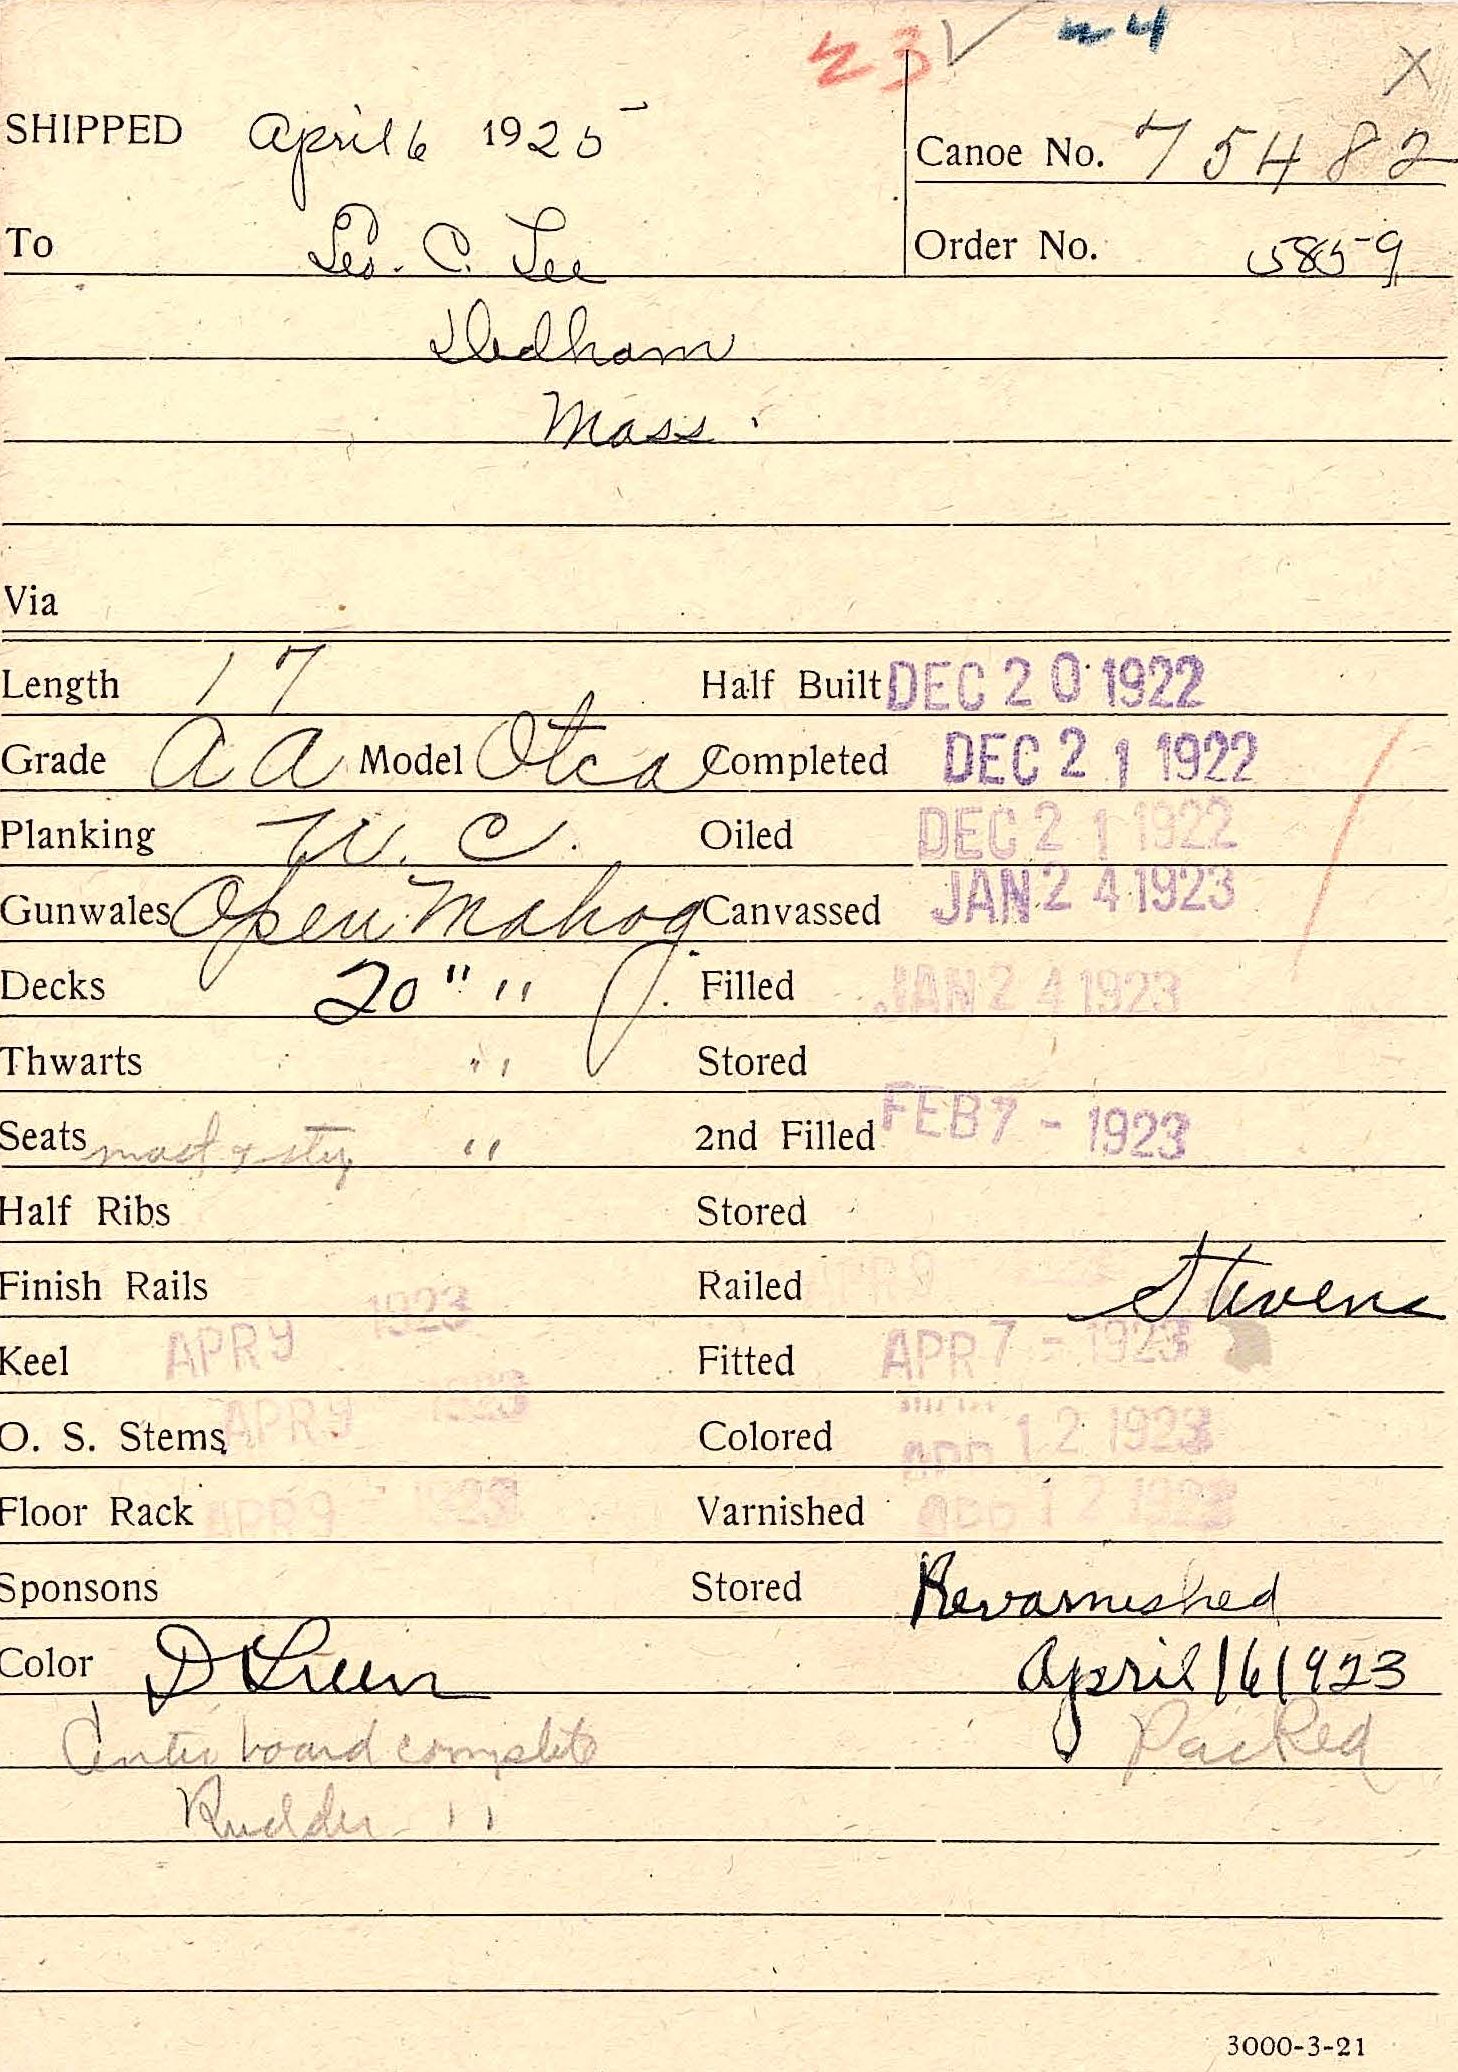 23 24
SHIPPED April 6 1925
Canoe No. 75482
To Geo. C. Lee
Order No. 5859
Dedham
Mass.
Via
Length 17 Half Built DEC 20 1922
Grade A A Model Otca Completed DEC 21 1922
Planking W. C. Oiled DEC 21 1922
Gunwales Open Mahog. Canvassed JAN 24 1923
Decks 20" " Filled JAN 24 1923
Thwarts " Stored
Seats mast & step " 2nd Filled FEB 7 - 1923
Half Ribs Stored
Finish Rails Railed Stevens
Keel APR 9 1923 Fitted APR 7 - 1923
O. S. Stems APR 9 1923 Colored APR 12 1923
Floor Rack APR 9 - 1923 Varnished APR 12 1923
Sponsons Stored Revarnished
Color D Green April 16 1923
Center board complete Packed
Rudder "
3000-3-21